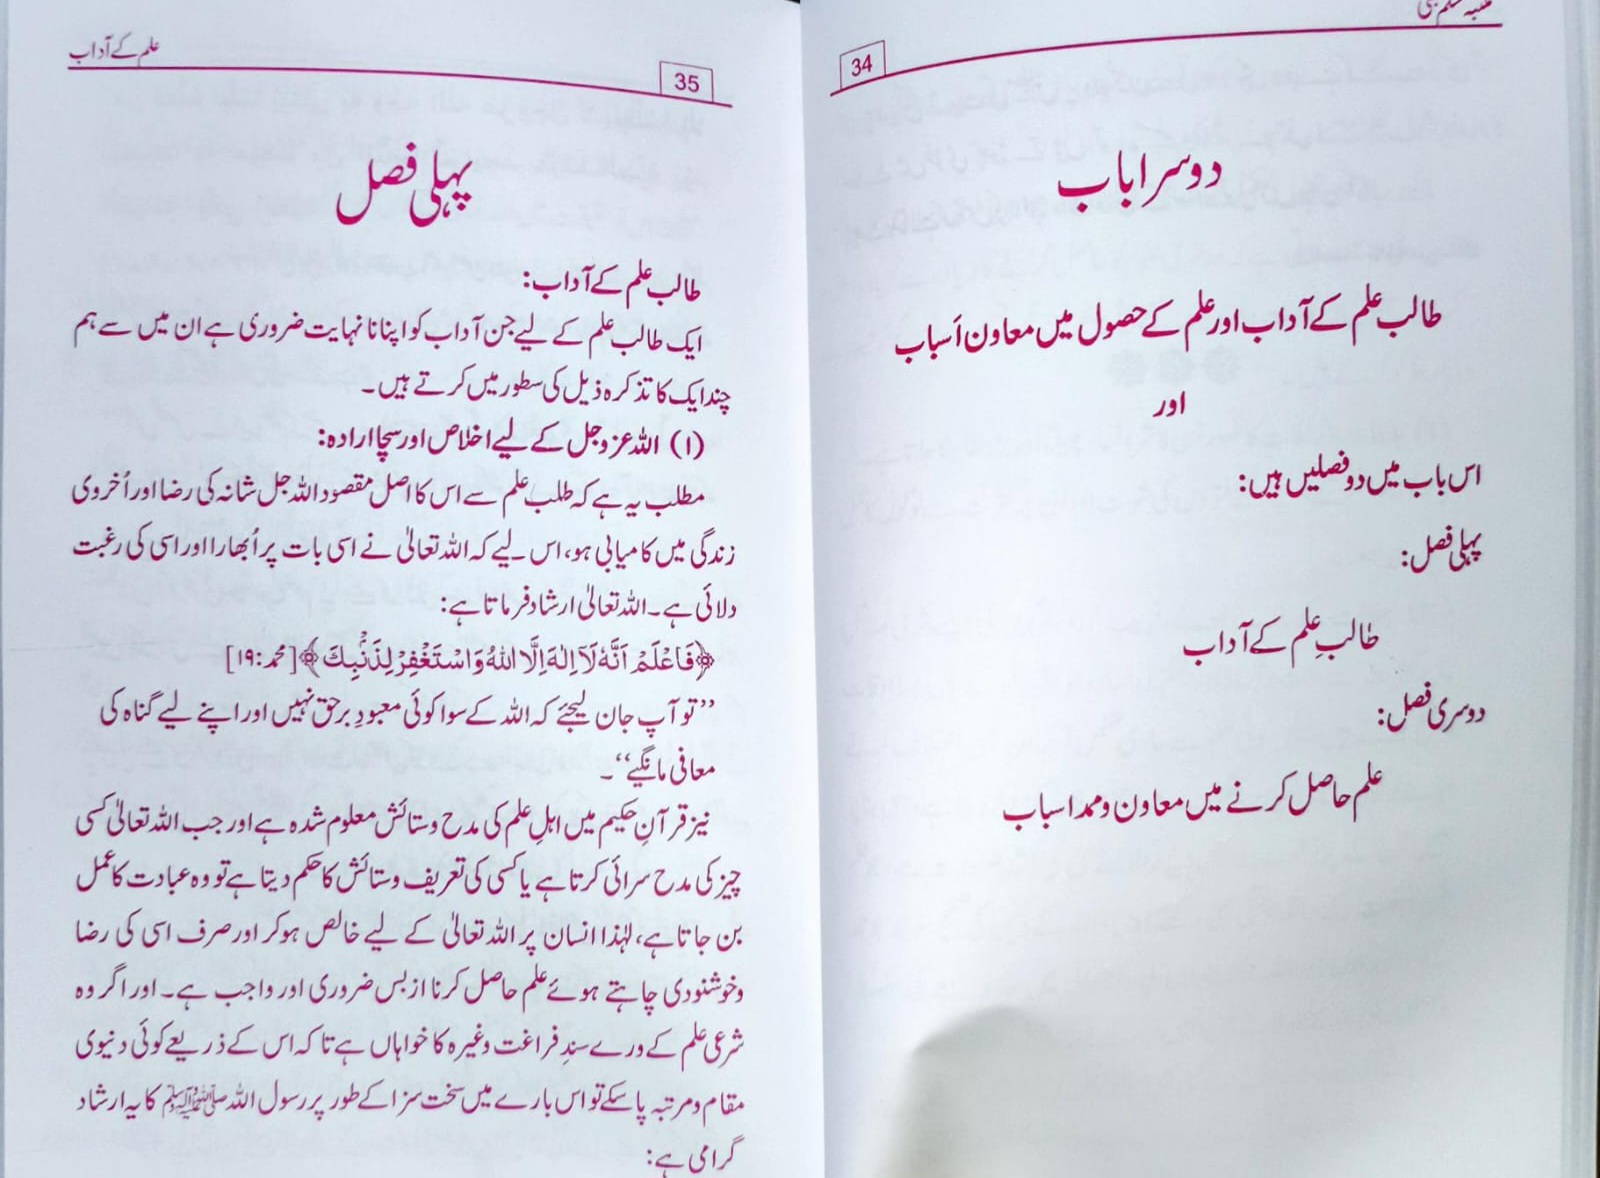 34
دوسرا باب
طالب علم کے آداب اور علم کے حصول میں معاون اَسباب
اور
اس باب میں دو فصلیں ہیں:
پہلی فصل:
طالبِ علم کے آداب
دوسری فصل:
علم حاصل کرنے میں معاون و ممد اسباب
علم کے آداب
35
پہلی فصل
طالب علم کے آداب:
ایک طالب علم کے لیے جن آداب کو اپنانا نہایت ضروری ہے ان میں سے ہم
چند ایک کا تذکرہ ذیل کی سطور میں کرتے ہیں۔
(۱) اللہ عزوجل کے لیے اخلاص اور سچا ارادہ:
مطلب یہ ہے کہ طلب علم سے اس کا اصل مقصود اللہ جل شانہ کی رضا اور اُخروی
زندگی میں کامیابی ہو، اس لیے کہ اللہ تعالیٰ نے اسی بات پر اُبھارا اور اسی کی رغبت
دلائی ہے۔ اللہ تعالیٰ ارشاد فرماتا ہے:
﴿فَاعْلَمْ اَنَّهٗ لَآ اِلٰهَ اِلَّا اللّٰهُ وَاسْتَغْفِرْ لِذَنْۢبِكَ﴾ [محمد: ۱۹]
’’تو آپ جان لیجئے کہ اللہ کے سوا کوئی معبودِ برحق نہیں اور اپنے لیے گناہ کی
معافی مانگیے‘‘۔
نیز قرآنِ حکیم میں اہلِ علم کی مدح و ستائش معلوم شدہ ہے اور جب اللہ تعالیٰ کسی
چیز کی مدح سرائی کرتا ہے یا کسی کی تعریف و ستائش کا حکم دیتا ہے تو وہ عبادت کا عمل
بن جاتا ہے، لہٰذا انسان پر اللہ تعالیٰ کے لیے خالص ہوکر اور صرف اسی کی رضا
وخوشنودی چاہتے ہوئے علم حاصل کرنا از بس ضروری اور واجب ہے۔ اور اگر وہ
شرعی علم کے ورے سندِ فراغت وغیرہ کا خواہاں ہے تاکہ اس کے ذریعے کوئی دنیوی
مقام و مرتبہ پاسکے تو اس بارے میں سخت سزا کے طور پر رسول اللہ ﷺ کا یہ ارشاد
گرامی ہے: